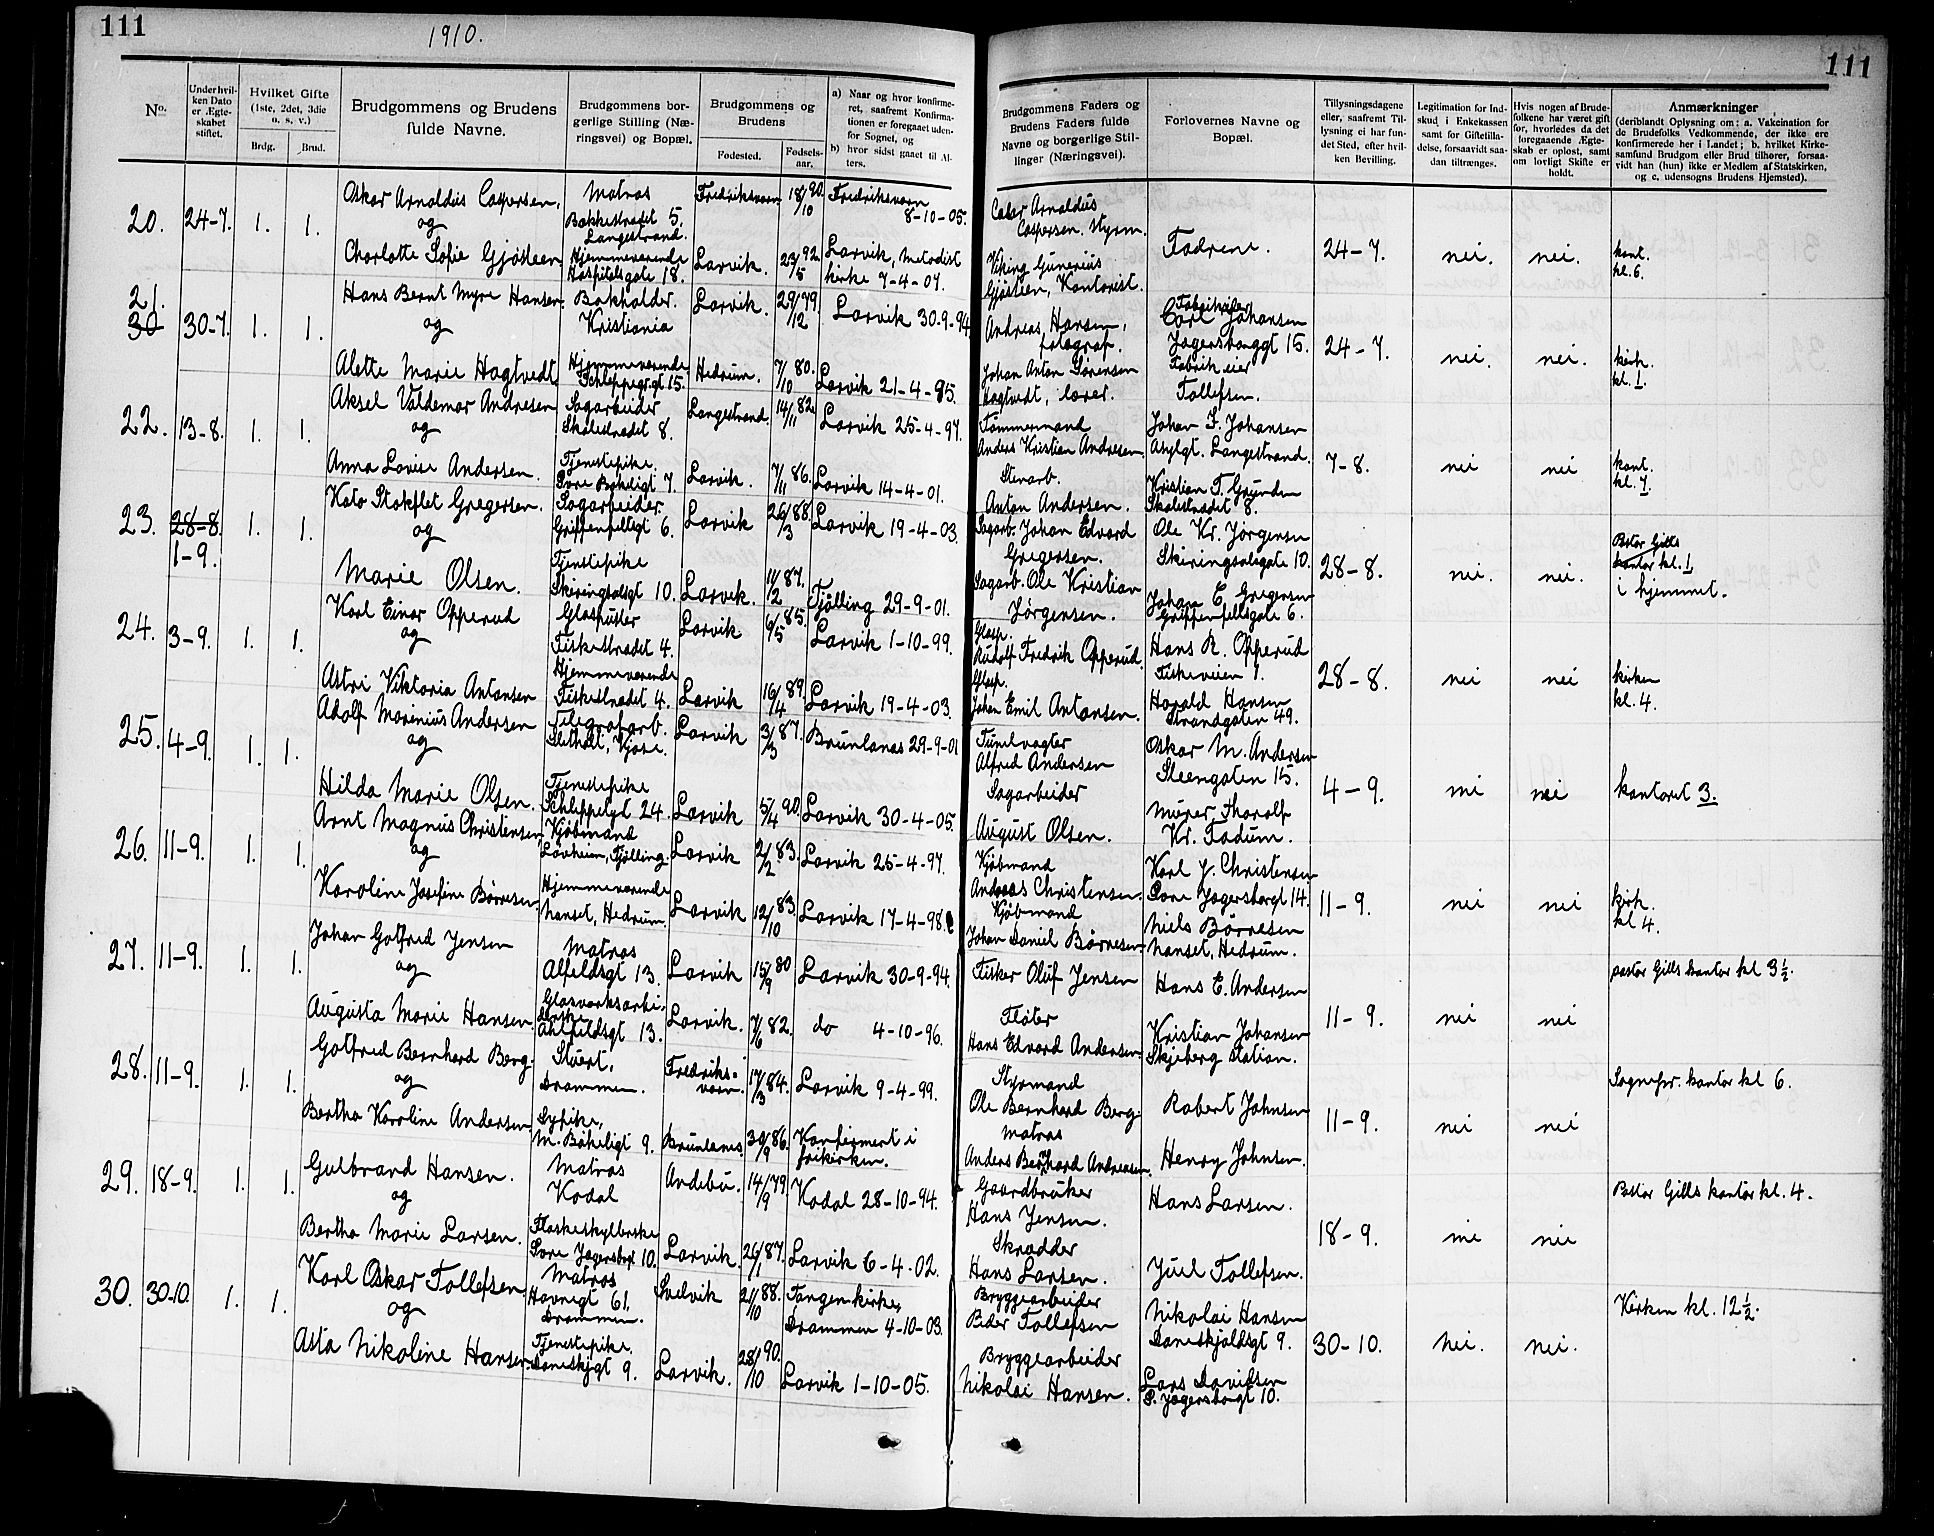 111
1910.
No.
Under hvil-
ken Dato
er Ægte-
skabet
stiftet.
Hvilket Gifte
(1ste, 2det, 3die
o. s. v.)
Brdg.
Brud.
Brudgommens og Brudens
fulde Navne.
Brudgommens bor-
gerlige Stilling (Næ-
ringsvei) og Bopæl.
Brudgommens og
Brudens
Fødested.
Fødsels-
aar.
a) Naar og hvor konfirme-
ret, saafremt Konfirma-
tionen er foregaaet uden-
for Sognet, og
b) hvor sidst gaaet til Al-
ters.
20. 24-7. 1. 1.
Oskar Arnoldus Caspersen,
og
Charlotte Sofie Gjøstien
Matros
Bakkestrædet 5.
Langestrand.
Hjemmeværende
Hospitalsgate 18.
Fredriksværn 18/10 90. Fredriksværn
8-10-05.
Larvik. 23/5 92 Larvik, Metodist
kirke 7-4-07.
21.
30 30-7. 1. 1.
Hans Bernt Myre Hansen
og
Alette Marie Hagtvedt
Bokholder.
Kristiania
Hjemmeværende
Schleppegrgt 15.
Larvik. 29/12 79. Larvik 30-9-94
Hedrum. 7/10 80. Larvik 21-4-95.
22. 13-8. 1. 1.
Aksel Valdemar Andresen
og
Anna Lovise Andersen.
Sagarbeider
Skolestrædet 8.
Tjenestepike.
Søre Bøkeligt 7.
Langestrand. 14/11 82. Larvik 25-4-97.
Larvik. 7/11 86. Larvik 14-4-01.
23. 28-8. 1. 1.
1-9.
Kato Stokflet Gregersen
og
Marie Olsen.
Sagarbeider
Griffenfeltsgt 6.
Tjenestepike
Skiringsalsgt 10.
Larvik 26/3 88. Larvik 19-4-03.
Larvik. 11/2 87. Tjølling 29-9-01.
24. 3-9. 1. 1.
Karl Einar Opperud
og
Astri Viktoria Antonsen
Glaspuster
Fiskestrædet 4.
Hjemmeværende
Fiskestrædet 4.
Larvik 6/5 85. Larvik 1-10-99.
Larvik 16/4 89. Larvik 19-4-03.
25. 4-9. 1. 1.
Adolf Marinius Andersen
og
Hilda Marie Olsen.
Telegrafarb.
Kjose.
Tjenestepike
Schleppelgt 24.
Larvik 3/3 87. Brunlanas 29-9-01
Larvik 5/4 90. Larvik 30-4-05.
26. 11-9. 1. 1.
Arnt Magnus Christensen
og
Karoline Josefine Børresen.
Kjøbmand
Løvheim, Tjølling.
Hjemmeværende
Nanset, Hedrum.
Larvik 2/2 83. Larvik 25-4-97.
Larvik 12/10 83. Larvik 17-4-98.
27. 11-9. 1. 1.
Johan Gotfred Jensen
og
Augusta Marie Hansen
Matros
Alfeldsgt 13.
Glasværksarbei-
derske
Ahlfeldsgt 13.
Larvik 15/9 80 Larvik 30-9-94.
Larvik. 7/6 82. do 4-10-96.
28. 11-9. 1. 1.
Gotfred Bernhard Berg.
og
Bertha Karoline Andersen
Stuert,
Drammen.
Sypike,
M. Bøkeligt 9.
Fredriks-
værn. 17/3 84. Larvik 9-4-99.
Brunlanes 30/9 86. Konfirmert i
frikirken.
29. 18-9. 1. 1.
Gulbrand Hansen.
og
Bertha Marie Larsen.
Matros
Kodal
Flaskeskyllerske
Søre Jegersbgt 10.
Andebu. 14/9 79. Kodal 28-10-94.
Larvik. 26/1 87. Larvik 6-4-02.
30. 30-10. 1. 1.
Karl Oskar Tollefsen
og
Asta Nikoline Hansen
Matros
Havnegt 61.
Drammen.
Tjenestepike.
Daneskjgt 9.
Svelvik 21/10 88. Tangen kirke,
Drammen 4-10-03.
Larvik. 28/10 90. Larvik 1-10-05.
111
Brudgommens Faders og
Brudens Faders fulde
Navne og borgerlige Stil-
linger (Næringsvei).
Forlovernes Navne og
Bopæl.
Tillysningsdagene
eller, saafremt Til-
lysning ei har fun-
det Sted, efter hvil-
ken Bevilling.
Legitimation for Ind-
skud i Enkekassen
samt for Giftetilla-
delse, forsaavidt saa-
dan tiltrænges.
Hvis nogen af Brude-
folkene har været gift
før, hvorledes da det
foregaaende Ægte-
skab er opløst, samt
om lovligt Skifte er
holdt.
Anmærkninger
(deriblandt Oplysning om: a. Vakcination for
de Brudefolks Vedkommende, der ikke ere
konfirmerede her i Landet; b. hvilket Kirke-
samfund Brudgom eller Brud tilhører, forsaa-
vidt han (hun) ikke er Medlem af Statskirken,
og c. udensogns Brudens Hjemsted).
Arnoldus
Caspersen. Styrm.
Viking Gunerius
Gjøstien, Kontorist.
Fædrene.
24-7. nei. nei. kont.
kl. 6.
Andreas Hansen,
fotograf.
Johan Anton Sørensen
Hagtvedt, lærer.
Fabrikeier
Carl Johansen
Jegersborggt 15.
Fabrikeier
Tollefsen.
24-7. nei. nei. kirk.
kl. 1.
Tømmermand
Anders Kristian Andresen
Stenarb.
Anton Andersen.
Johan F. Johansen
Asylgt. Langestrand.
Kristian T. Grunden
Skolestrædet 8.
7-8. nei nei kont.
kl. 7.
Sagarb. Johan Edvard
Gregersen.
Sagarb. Ole Kristian
Jørgensen.
Ole Kr. Jørgensen
Skiringsalsgate 10.
Johan E. Gregersen
Griffenfeltsgate 6.
28-8. nei. nei. Pstor Gills
kontor kl. 1
i hjemmet.
Glasp.
Rudolf Fredrik Opperud.
Glasp.
Johan Emil Antonsen.
Hans R. Opperud
Fiskeveien 1.
Harald Hansen
Strandgaten 49.
28-8. nei nei kirken
kl. 4.
Tunelvagter
Alfred Andersen
Sagarbeider
August Olsen.
Oskar M. Andersen
Steengaten 15.
Murer Thoralf
Kr. Fadum.
4-9. nei nei kontoret 3.
Kjøbmand
Andreas Christensen.
Kjøbmand
Johan Daniel Børresen
Karl J. Christensen
Søre Jegersborgt 14.
Niels Børresen
Nanset, Hedrum.
11-9. nei nei kirk.
kl 4.
Fisker Oluf Jensen
Fløter
Hans Edvard Andersen
Hans E. Andersen
Kristian Johansen
Skjeberg Station.
11-9. nei nei pastor Gills kontor kl 3 1/2.
Styrmand
Ole Bernhard Berg.
Matros
Anders Bernhard Andreasen.
Robert Johnsen
Henry Johnsen.
11-9. nei nei Sognepr. kontor kl 6.
Gaardbruker
Hans Jensen.
Skrædder
Hans Larsen.
Hans Larsen.
Juel Tollefsen.
18-9. nei nei Pstor Gills kontor kl. 4.
Bryggearbeider
Peder Tollefsen
Bryggearbeider
Nikolai Hansen.
Nikolai Hansen
Daneskjoldsgt 9.
Lars Davidsen
S. Jegersborgt 10.
30-10. Nei. nei. Kirken kl. 12 1/2.